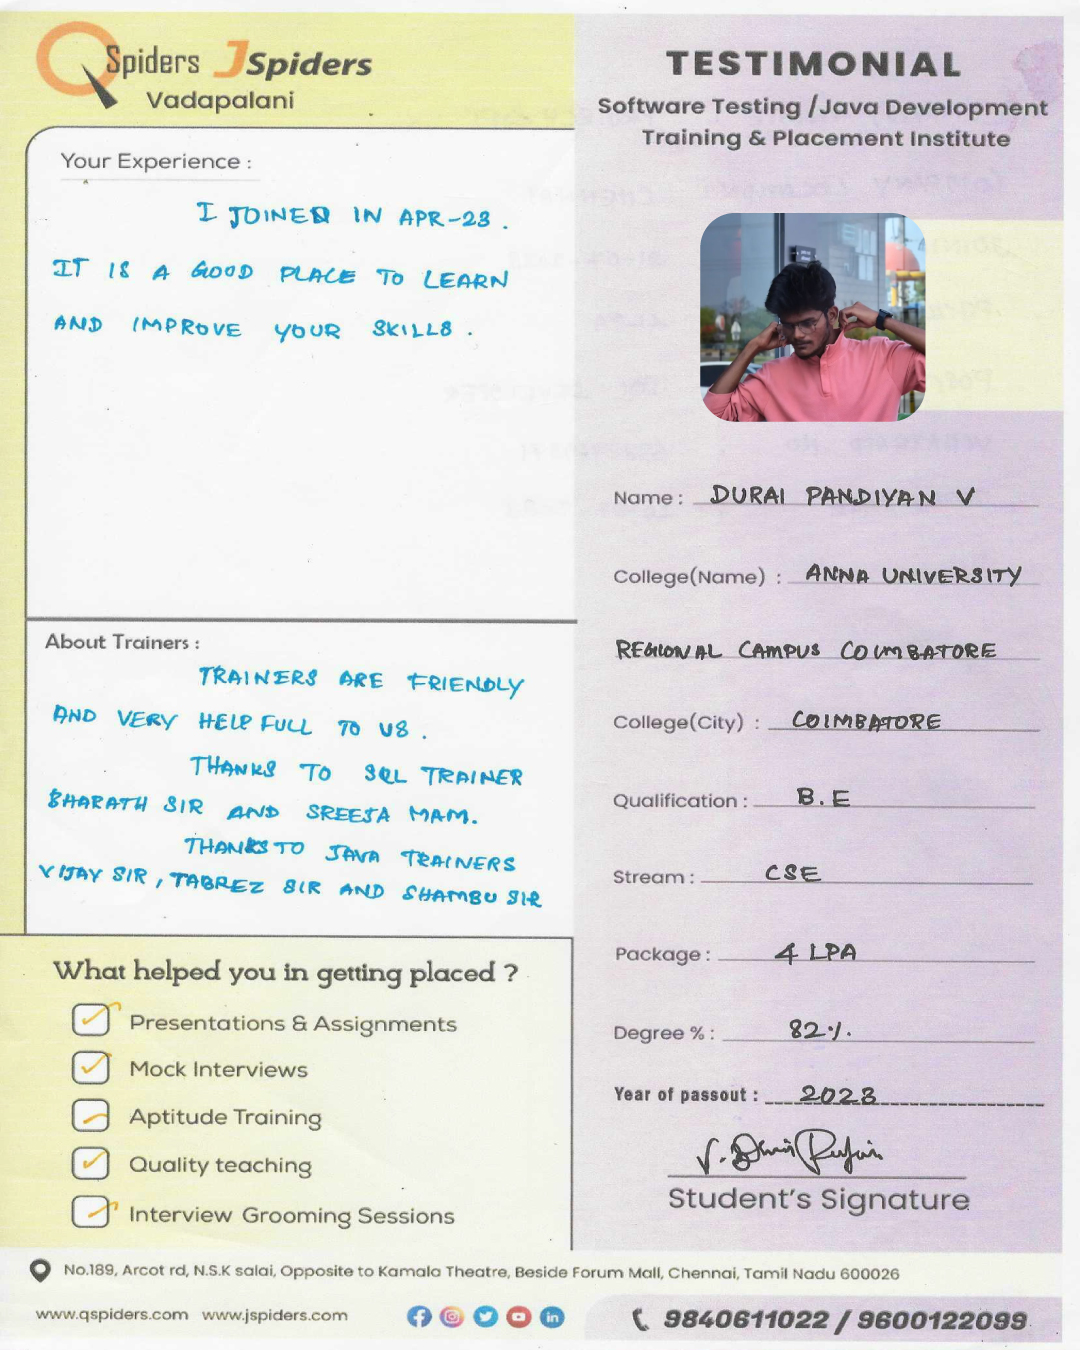 QSpiders JSpiders
Vadapalani
Your Experience :
I JOINED IN APR-23.
IT IS A GOOD PLACE TO LEARN
AND IMPROVE YOUR SKILLS.
About Trainers :
TRAINERS ARE FRIENDLY
AND VERY HELP FULL TO US.
THANKS TO SQL TRAINER
BHARATH SIR AND SREEJA MAM.
THANKS TO JAVA TRAINERS
VIJAY SIR, TABREZ SIR AND SHAMBU SIR
What helped you in getting placed ?
Presentations & Assignments
Mock Interviews
Aptitude Training
Quality teaching
Interview Grooming Sessions
TESTIMONIAL
Software Testing /Java Development
Training & Placement Institute
Name : DURAI PANDIYAN V
College(Name) : ANNA UNIVERSITY
REGIONAL CAMPUS COIMBATORE
College(City) : COIMBATORE
Qualification : B.E
Stream : CSE
Package : 4 LPA
Degree % : 82%.
Year of passout : 2023
Student's Signature
No.189, Arcot rd, N.S.K salai, Opposite to Kamala Theatre, Beside Forum Mall, Chennai, Tamil Nadu 600026
www.qspiders.com www.jspiders.com
9840611022 / 9600122099